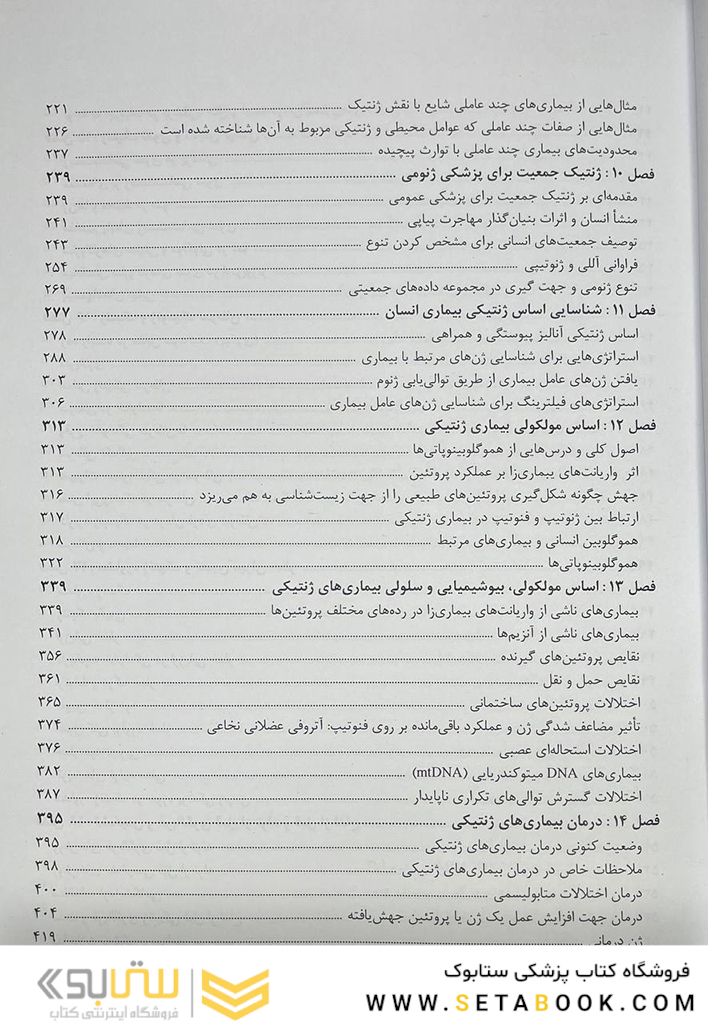 مثال‌هایی از بیماری‌های چند عاملی شایع با نقش ژنتیک ۲۲۱
مثال‌هایی از صفات چند عاملی که عوامل محیطی و ژنتیکی مربوط به آن‌ها شناخته شده است ۲۲۶
محدودیت‌های بیماری چند عاملی با توارث پیچیده ۲۳۷
فصل ۱۰: ژنتیک جمعیت برای پزشکی ژنومی ۲۳۹
مقدمه‌ای بر ژنتیک جمعیت برای پزشکی عمومی ۲۳۹
منشأ انسان و اثرات بنیان‌گذار مهاجرت پیاپی ۲۴۱
توصیف جمعیت‌های انسانی برای مشخص کردن تنوع ۲۴۳
فراوانی آللی و ژنوتیپی ۲۵۴
تنوع ژنومی و جهت گیری در مجموعه داده‌های جمعیتی ۲۶۹
فصل ۱۱: شناسایی اساس ژنتیکی بیماری انسان ۲۷۷
اساس ژنتیکی آنالیز پیوستگی و همراهی ۲۷۸
استراتژی‌هایی برای شناسایی ژن‌های مرتبط با بیماری ۲۸۸
یافتن ژن‌های عامل بیماری از طریق توالی‌یابی ژنوم ۳۰۳
استراتژی‌های فیلترینگ برای شناسایی ژن‌های عامل بیماری ۳۰۶
فصل ۱۲: اساس مولکولی بیماری ژنتیکی ۳۱۳
اصول کلی و درس‌هایی از هموگلوبینوپاتی‌ها ۳۱۳
اثر واریانت‌های بیماری‌زا بر عملکرد پروتئین ۳۱۳
جهش چگونه شکل‌گیری پروتئین‌های طبیعی را از جهت زیست‌شناسی به هم می‌ریزد ۳۱۶
ارتباط بین ژنوتیپ و فنوتیپ در بیماری ژنتیکی ۳۱۷
هموگلوبین انسانی و بیماری‌های مرتبط ۳۱۸
هموگلوبینوپاتی‌ها ۳۲۲
فصل ۱۳: اساس مولکولی، بیوشیمیایی و سلولی بیماری‌های ژنتیکی ۳۳۹
بیماری‌های ناشی از واریانت‌های بیماری‌زا در رده‌های مختلف پروتئین‌ها ۳۳۹
بیماری‌های ناشی از آنزیم‌ها ۳۴۱
نقایص پروتئین‌های گیرنده ۳۵۶
نقایص حمل و نقل ۳۶۱
اختلالات پروتئین‌های ساختمانی ۳۶۵
تأثیر مضاعف شدگی ژن و عملکرد باقی‌مانده بر روی فنوتیپ: آتروفی عضلانی نخاعی ۳۷۴
اختلالات استحاله‌ای عصبی ۳۷۶
بیماری‌های DNA میتوکندریایی (mtDNA) ۳۸۲
اختلالات گسترش توالی‌های تکراری ناپایدار ۳۸۷
فصل ۱۴: درمان بیماری‌های ژنتیکی ۳۹۵
وضعیت کنونی درمان بیماری‌های ژنتیکی ۳۹۵
ملاحظات خاص در درمان بیماری‌های ژنتیکی ۳۹۸
درمان اختلالات متابولیسمی ۴۰۰
درمان جهت افزایش عمل یک ژن یا پروتئین جهش‌یافته ۴۰۴
ژن درمانی ۴۱۹
فروشگاه کتاب پزشکی ستابوک
WWW.SETABOOK.COM
ستابوک
فروشگاه اینترنتی کتاب